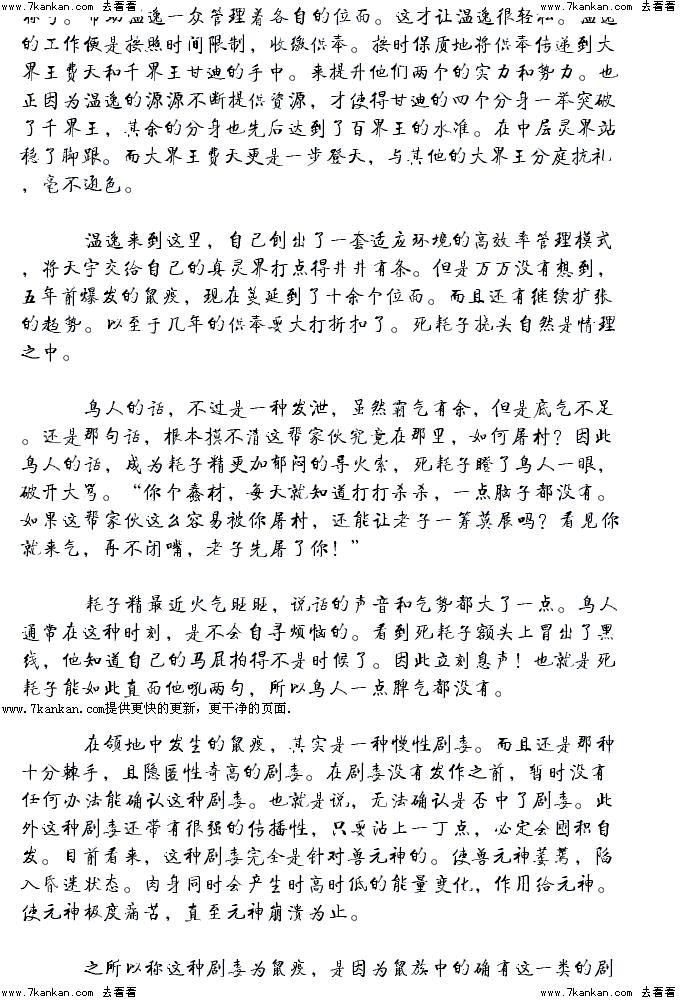 www.7kankan.com 去看看 www.7kankan.com 去看看 www.7kankan.com 去看看 www.7kankan.com 去看看
的工作便是按照时间限制，收缴供奉。按时保质地将供奉传递到大
界王费天和千界王甘迪的手中。来提升他们两个的实力和势力。也
正因为温逸的源源不断提供资源，才使得甘迪的四个分身一举突破
了千界王，其余的分身也先后达到了百界王的水准。在中层灵界站
稳了脚跟。而大界王费天更是一步登天，与其他的大界王分庭抗礼
，毫不逊色。
温逸来到这里，自己创出了一套适应环境的高效率管理模式
，将天宇交给自己的真灵界打点得井井有条。但是万万没有想到，
五年前爆发的鼠疫，现在蔓延到了十余个位面。而且还有继续扩张
的趋势。以至于几年的供奉要大打折扣了。死耗子挠头自然是情理
之中。
鸟人的话，不过是一种发泄，虽然霸气有余，但是底气不足
。还是那句话，根本摸不清这帮家伙究竟在那里，如何屠村？因此
鸟人的话，成为耗子精更加郁闷的导火索，死耗子瞪了鸟人一眼，
破开大骂。“你个蠢材，每天就知道打打杀杀，一点脑子都没有。
如果这帮家伙这么容易被你屠村，还能让老子一筹莫展吗？看见你
就来气，再不闭嘴，老子先屠了你！”
耗子精最近火气旺旺，说话的声音和气势都大了一点。鸟人
通常在这种时刻，是不会自寻烦恼的。看到死耗子额头上冒出了黑
线，他知道自己的马屁拍得不是时候了。因此立刻息声！也就是死
耗子能如此直面他吼两句，所以鸟人一点脾气都没有。
www.7kankan.com提供更快的更新，更干净的页面.
在领地中发生的鼠疫，其实是一种慢性剧毒。而且还是那种
十分棘手，且隐匿性奇高的剧毒。在剧毒没有发作之前，暂时没有
任何办法能确认这种剧毒。也就是说，无法确认是否中了剧毒。此
外这种剧毒还带有很强的传播性，只要沾上一丁点，必定会囤积自
发。目前看来，这种剧毒完全是针对兽元神的。使兽元神萎蔫，陷
入昏迷状态。肉身同时会产生时高时低的能量变化，作用给元神。
使元神极度痛苦，直至元神崩溃为止。
之所以称这种剧毒为鼠疫，是因为鼠族中的确有这一类的剧
www.7kankan.com 去看看 www.7kankan.com 去看看 www.7kankan.com 去看看 www.7kankan.com 去看看